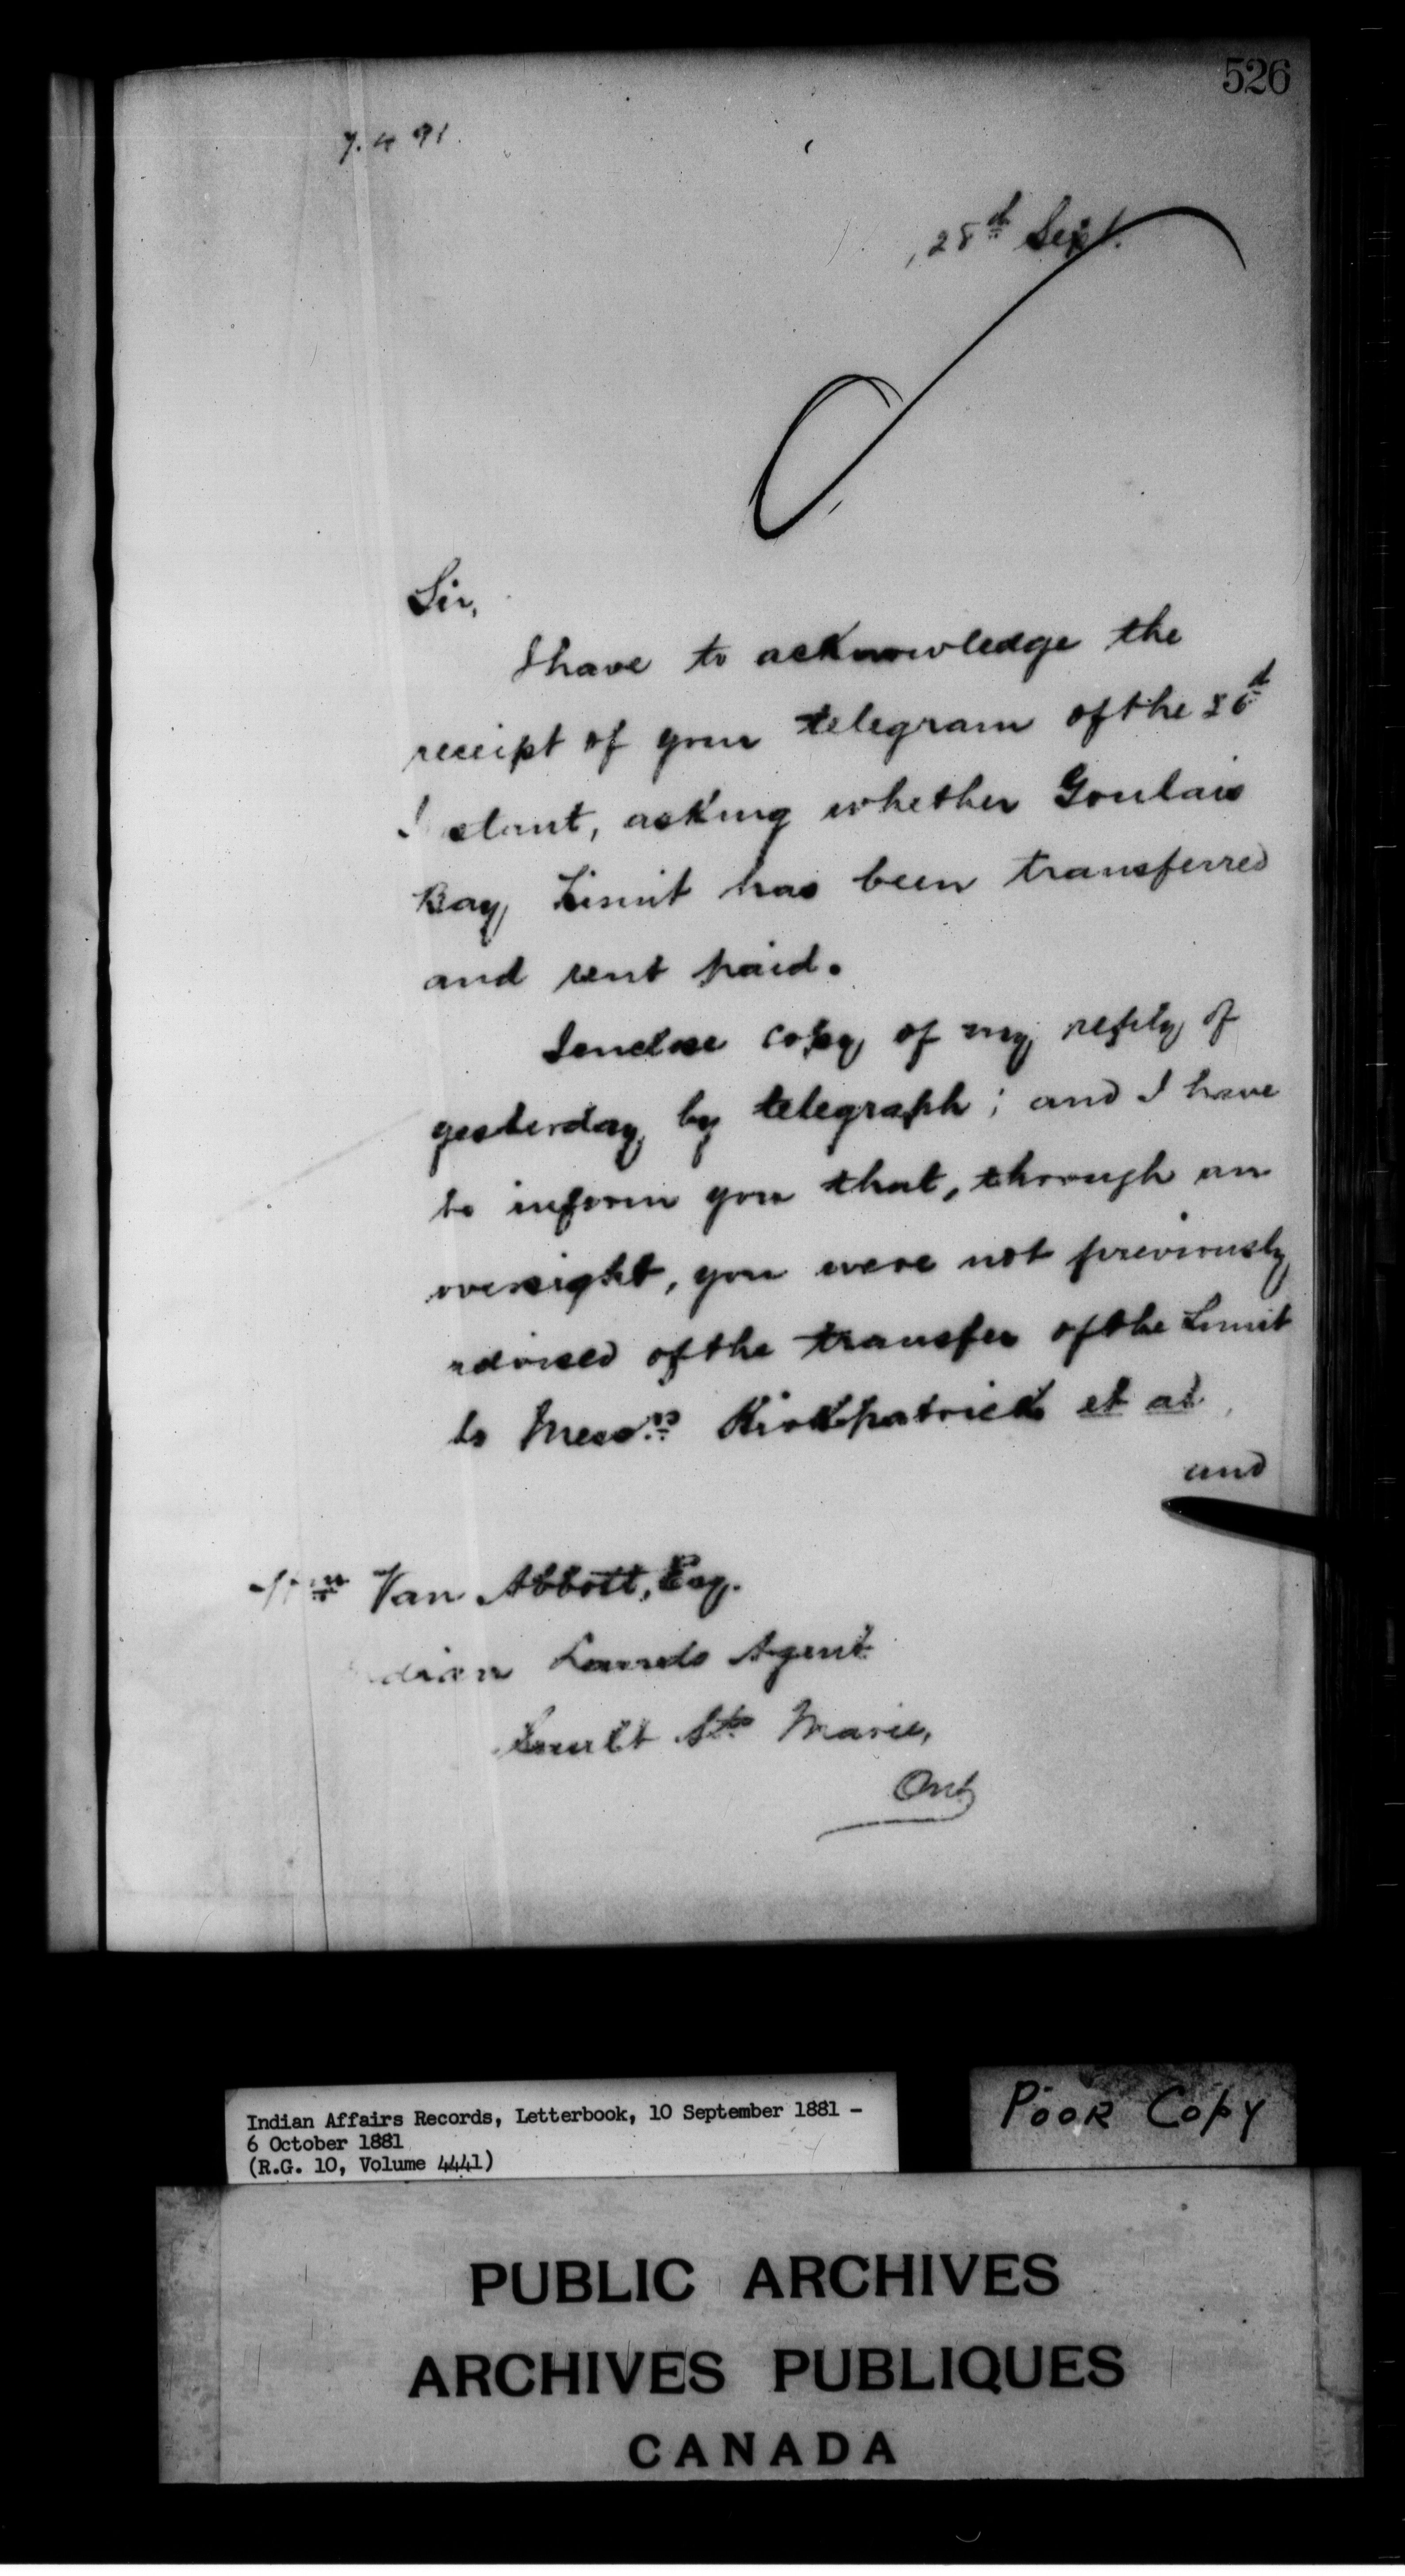 526
7.4 91.
28th Sept.
Sir,
I have to acknowledge the
receipt of your telegram of the 26th
I stant, asking whether Goulais
Bay Limit has been transferred
and rent paid.
I enclose copy of my reply of
yesterday by telegraph; and I have
to inform you that, through an
oversight, you were not previously
advised of the transfer of the Limit
to Messrs Kirkpatrick et al
and
Wm Van Abbott, Esq.
dian Lands Agent
Sault Ste Marie,
Ont
Indian Affairs Records, Letterbook, 10 September 1881 -
6 October 1881
(R.G. 10, Volume 4441)
POOR COPY
PUBLIC ARCHIVES
ARCHIVES PUBLIQUES
CANADA